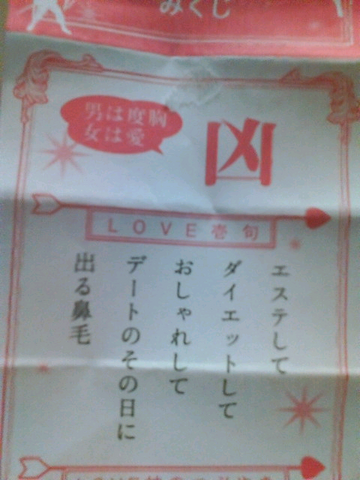 みくじ
男は度胸
女は愛
凶
LOVE壱句
エステして
ダイエットして
おしゃれして
デートのその日に
出る鼻毛